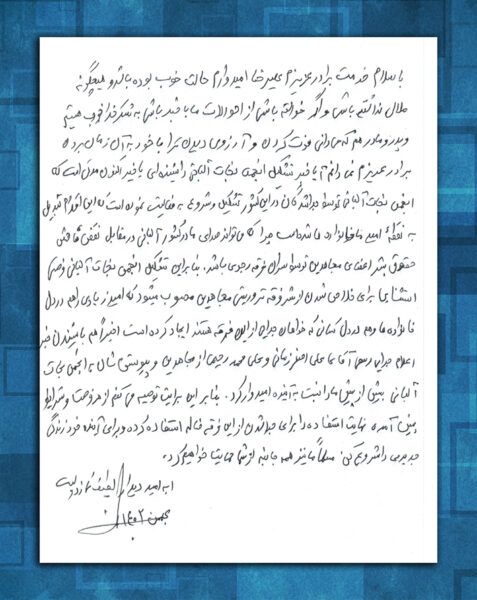 با سلام خدمت برادر عزیزم علیرضا امیدوارم حالت خوب بوده باشد و هیچگونه
ملال نداشته باشی و اگر خواسته باشی از احوالات ما با خبر باشی به شکر خدا خوب هستیم
و پدر و مادر هم که سالهای فوت کردن و آرزوی دیدن ترا با خود به آن زمان برده
برادر عزیزم نمی دانم آیا خبر تشکیل انجمن نجات آلبانی را شنیده‌ای یا خیر اکنون مدتی است که
انجمن نجات آلبانی توسط جداشدگان در این کشور تشکیل و شروع به فعالیت نموده است که این اقدام تبدیل
به نقطه امید ما خانواده ها شده است چرا که می‌تواند صدای ما در کشور آلبانی در مقابل نقض فاحش
حقوق بشر اعضای مجاهدین توسط سران فرقه رجوی باشد. بنابراین تشکیل انجمن نجات آلبانی فرصتی
استثنایی برای خلاصی شدن از شر فرقه تروریستی مجاهدین محسوب میشود که امید زیادی هم در دل
خانواده ها و هم در دل کسانی که خواهان جدایی از این فرقه هستند ایجاد کرده است اخیرا هم با شنیدن خبر
اعلام جدایی رسمی آقایان علی اصغر زمانی و علی محمد رحیمی از مجاهدین و پیوستن شان به انجمن نجات
آلبانی بیش از پیش ما را نسبت به آینده امیدوار کرد. بنابراین برایت توصیه می کنم از هر فرصت و شرایط
پیش آمدی نهایت استفاده را برای جدا شدن از این فرقه ظاله استفاده کرده و برای آینده خود زندگی
جدیدی را شروع کنی مسلماً ما نیز همه جانبه از شما حمایت خواهیم کرد.
به امید دیدار لطیف
بهمن ۱۴۰۲